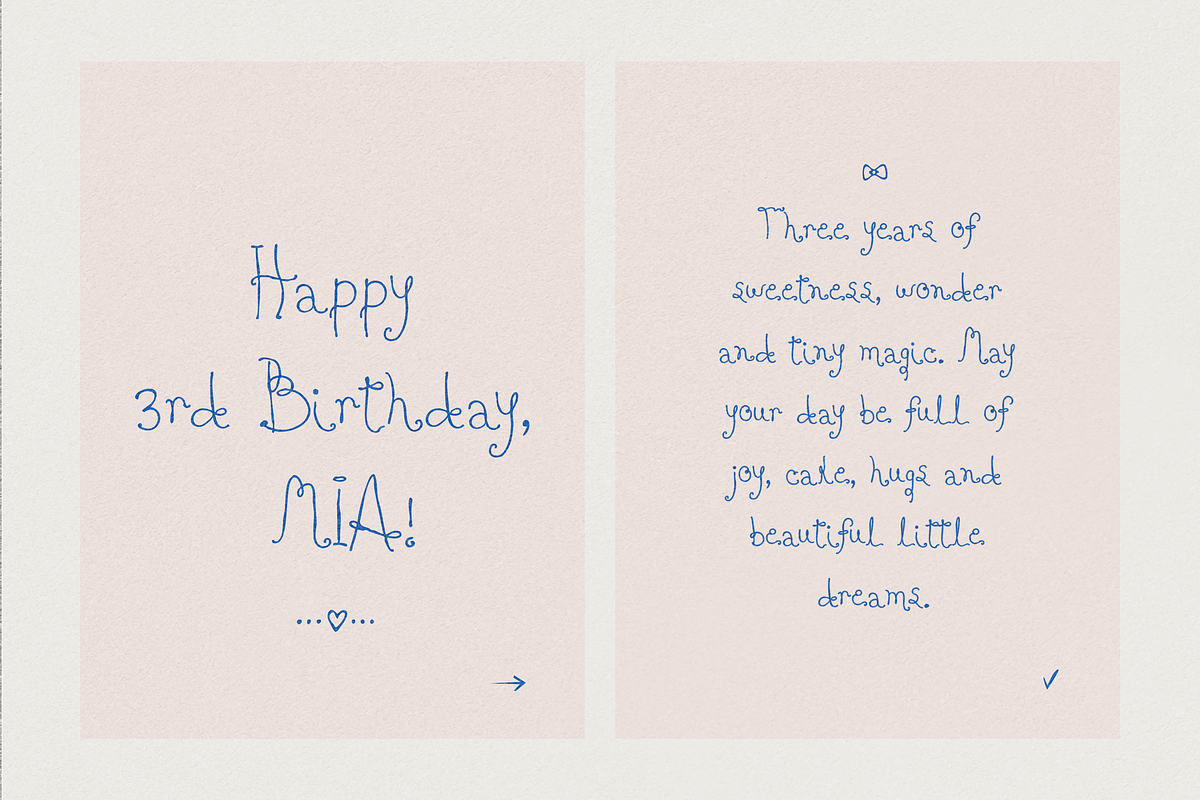 Happy
3rd Birthday,
MIA!
Three years of
sweetness, wonder
and tiny magic. May
your day be full of
joy, cake, hugs and
beautiful little
dreams.